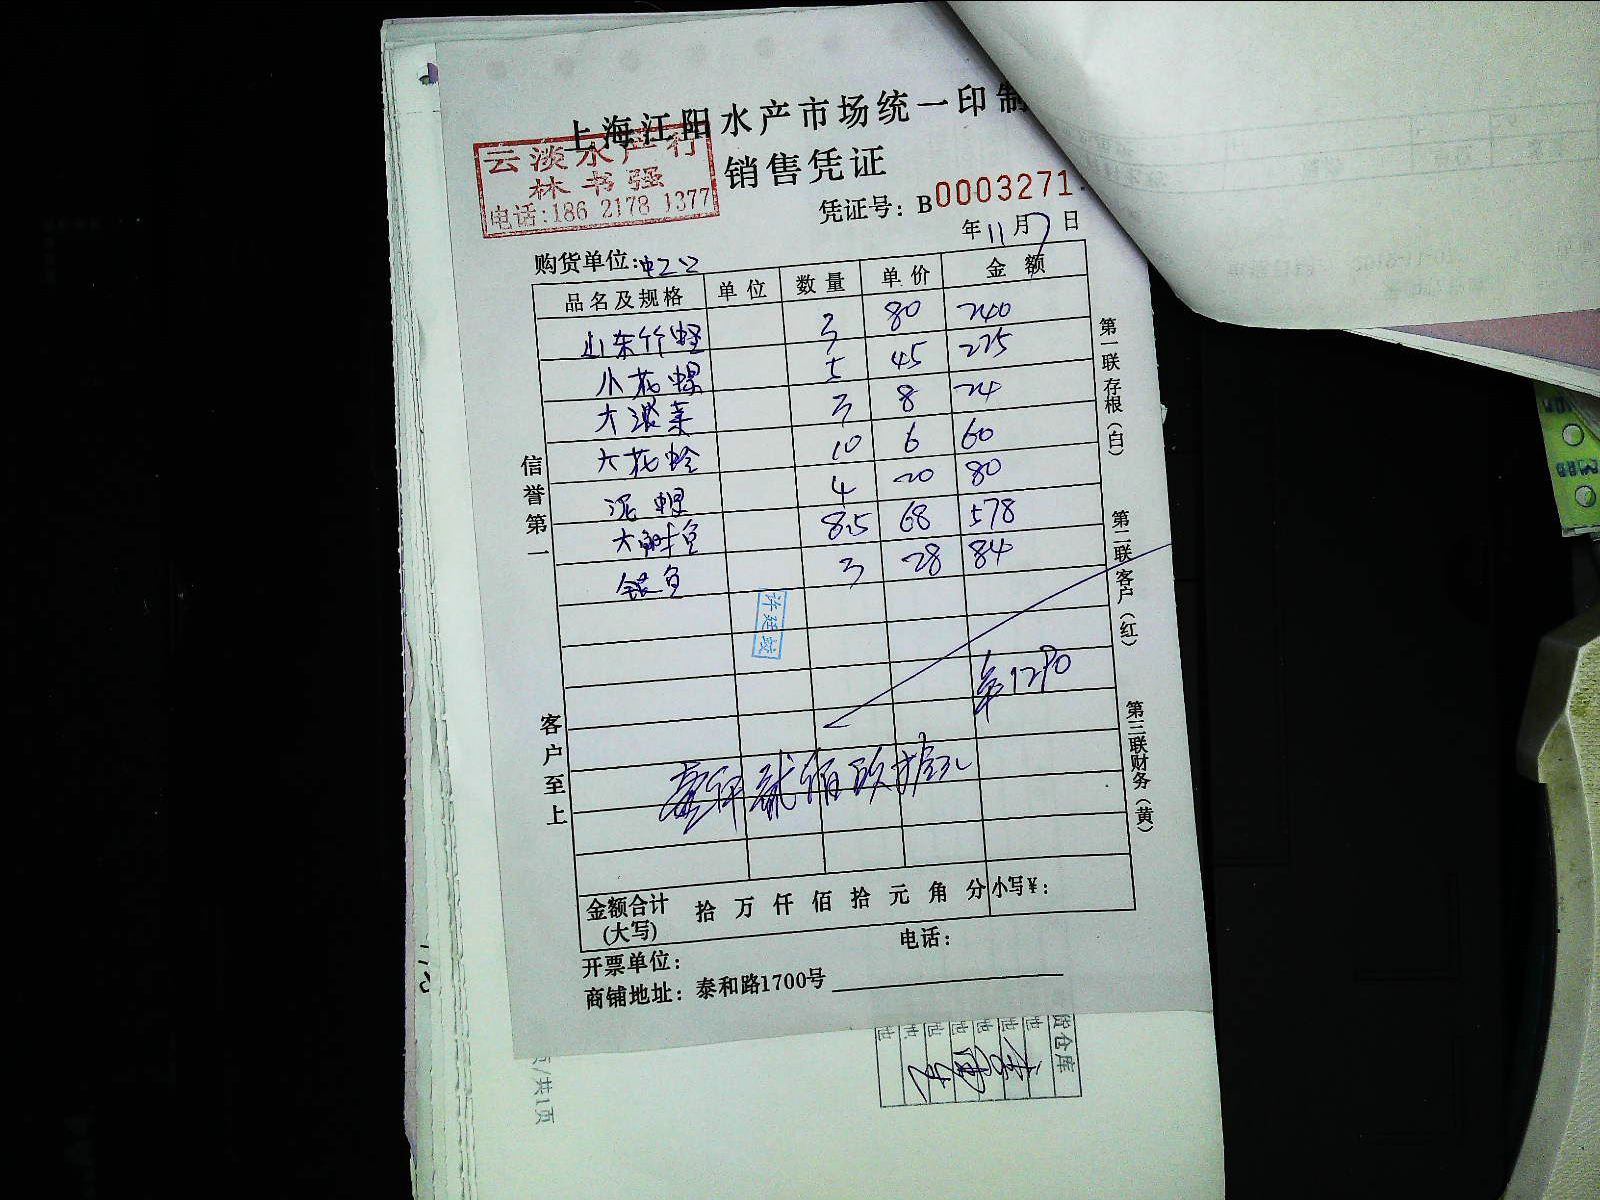 上海江阳水产市场统一印制
云淡水产行
林书强
电话:186 2178 1377
销售凭证
凭证号: B0003271
年11月7日
购货单位:
品名及规格 单位 数量 单价 金额
山东竹蛏 3 80 240
小花螺 5 45 225
大菠菜 3 8 24
大花蛤 10 6 60
泥螺 4 20 80
大鲜鱼 8.5 68 578
银鱼 3 28 84
许廷
1290
信誉第一
客户至上
第一联存根(白)
第二联客户(红)
第三联财务(黄)
金额合计(大写) 拾 万 仟 佰 拾 元 角 分 小写¥:
开票单位: 电话:
商铺地址: 泰和路1700号
货仓库
页/共1页